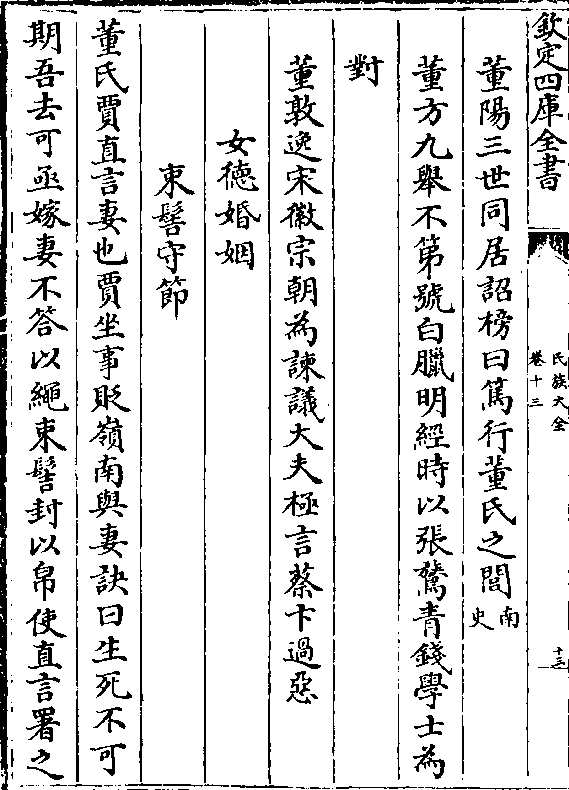 欽定四庫全書
氏族大全
卷十三
董陽三世同居詔榜曰篤行董氏之閭南史
董方九舉不第號白臘明經時以張鷟青錢學士為
對
董敦逸宋徽宗朝為諫議大夫極言蔡卞過惡
女德婚姻
束髻守節
董氏賈直言妻也賈坐事貶嶺南與妻訣曰生死不可
期吾去可亟嫁妻不答以繩束髻封以帛使直言署之